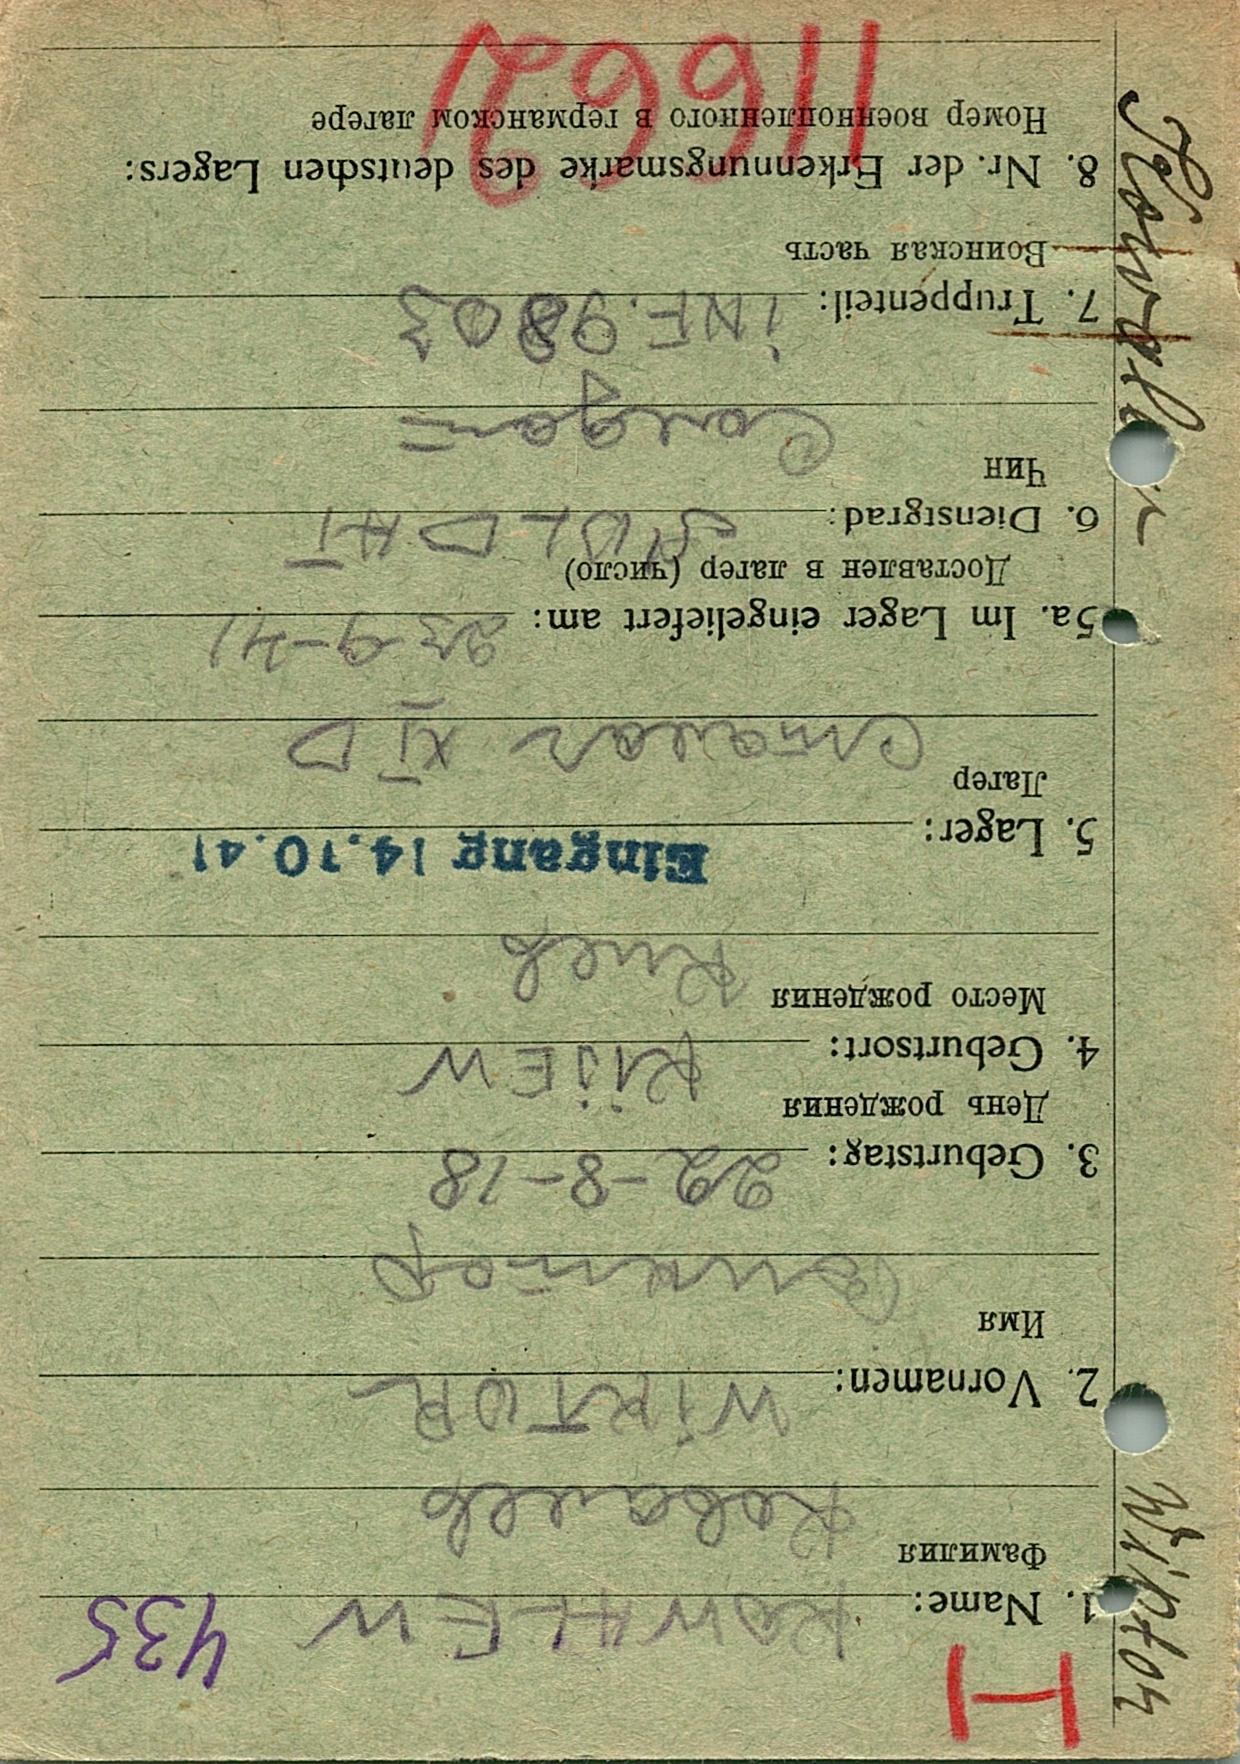 H
435
1. Name: KOWALEW
Фамилия
Ковалев
2. Vornamen: WIKTOR
Имя
Виктор
3. Geburtstag: 22-8-18
День рождения
4. Geburtsort: KIJEW
Место рождения
Киев
Eingang 14.10.41
5. Lager:
Лагер
сталаг XI D
5a. Im Lager eingeliefert am: 23-9-41
Доставлен в лагер (число)
6. Dienstgrad: SOLDAT
Чин
Солдат
7. Truppenteil: INF. 9803
Воинская часть
8. Nr. der Erkennungsmarke des deutschen Lagers:
Номер военнопленного в германском лагере
11662
Kowalew Wiktor